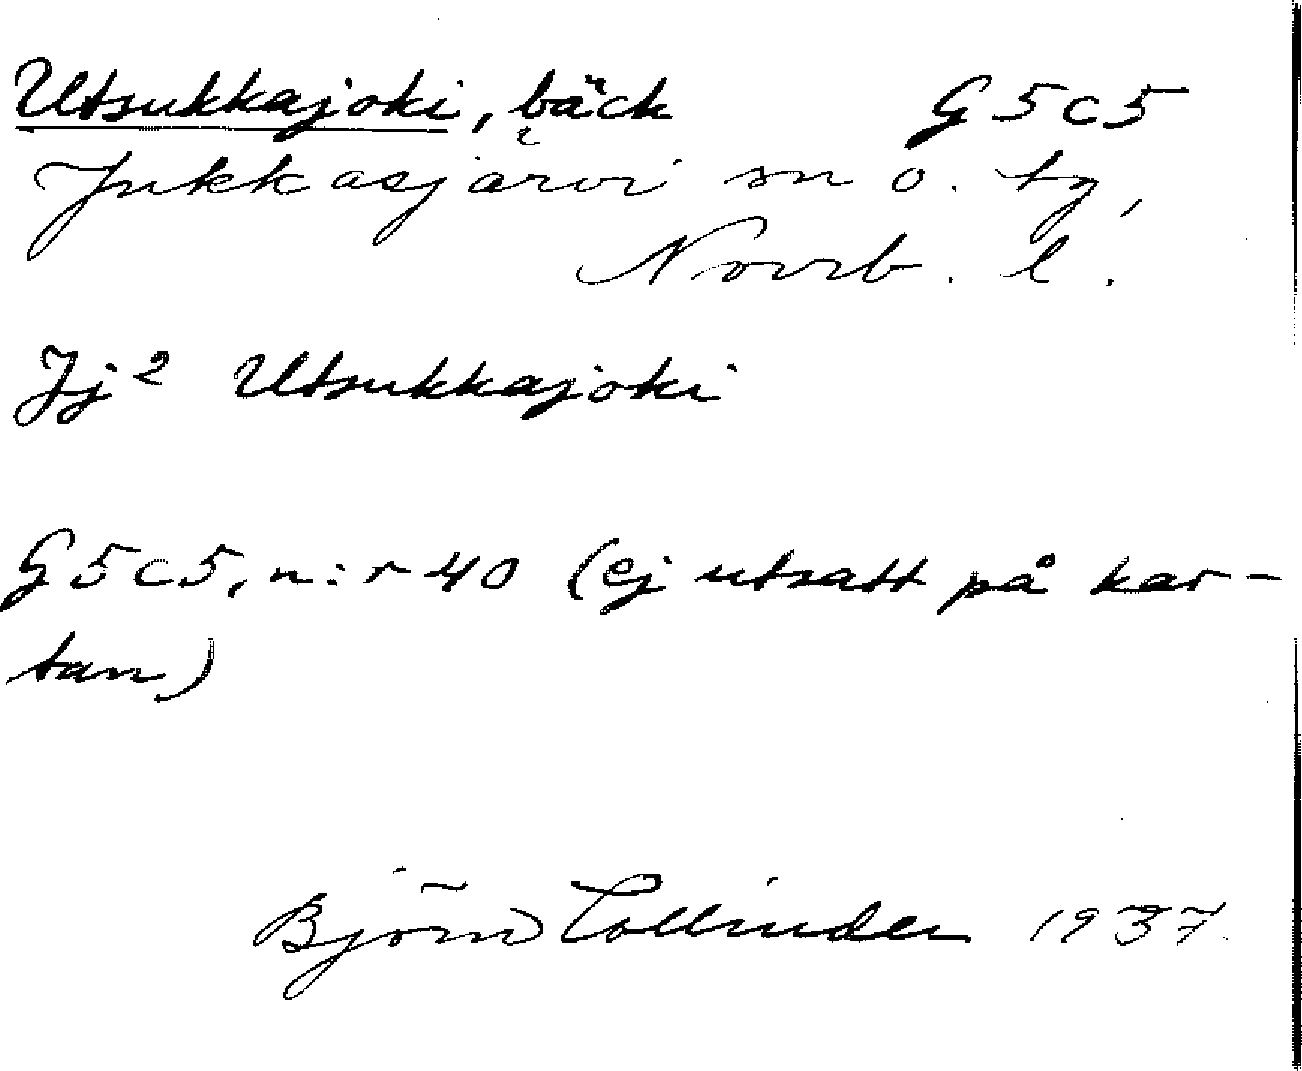 Utsukkajoki, bäck G5c5
Jukkasjärvi sn o. tg,
Norrb. l.
Jj² Utsukkajoki
G5c5, n:r 40 (ej utsatt på kar-
tan)
Björn Collinder 1937